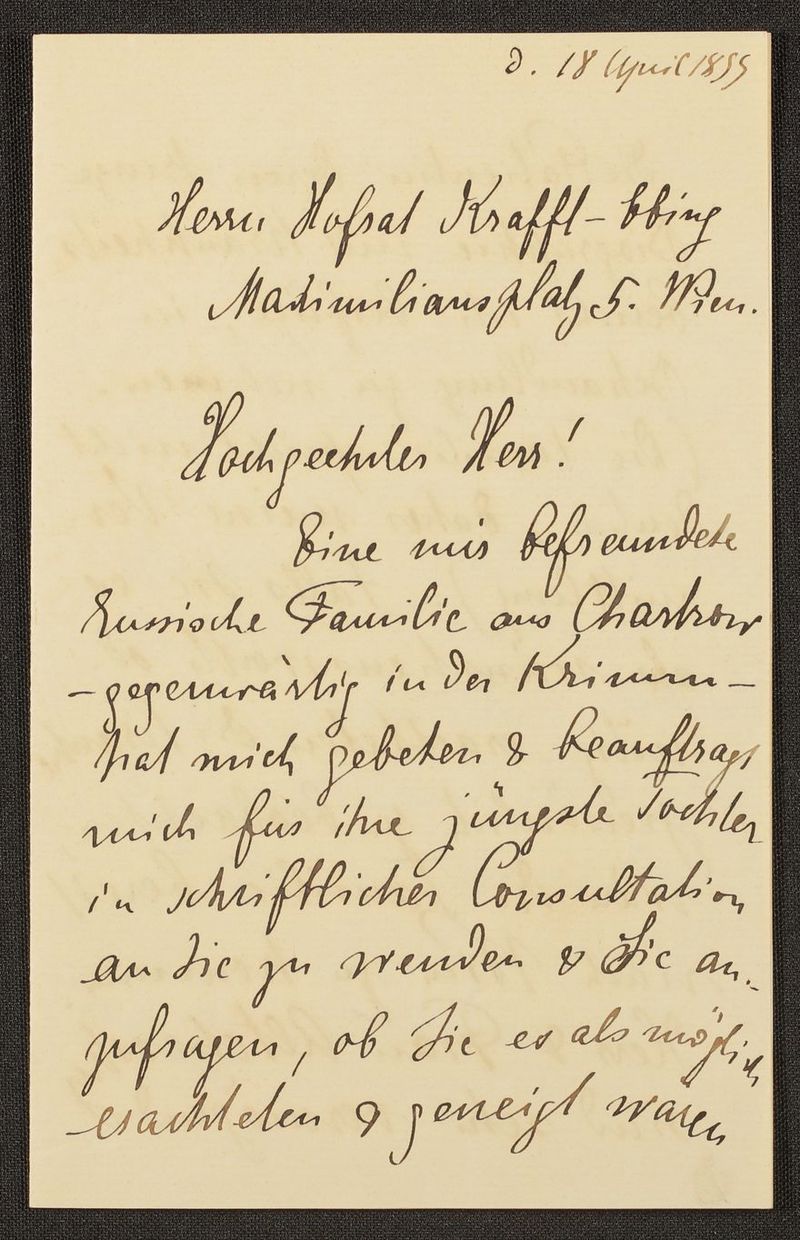 d. 18 April 1899
Herrn Hofrat Krafft-Ebing
Maximiliansplatz 5. Wien.
Hochgeehrter Herr!
Eine mir befreundete
russische Familie aus Charkow
- gegenwärtig in der Krimm -
hat mich gebeten & beauftragt
mich für ihre jüngste Tochter
in schriftlicher Consultation
an Sie zu wenden & Sie an-
zufragen, ob Sie es als möglich
erachteten & geneigt wären